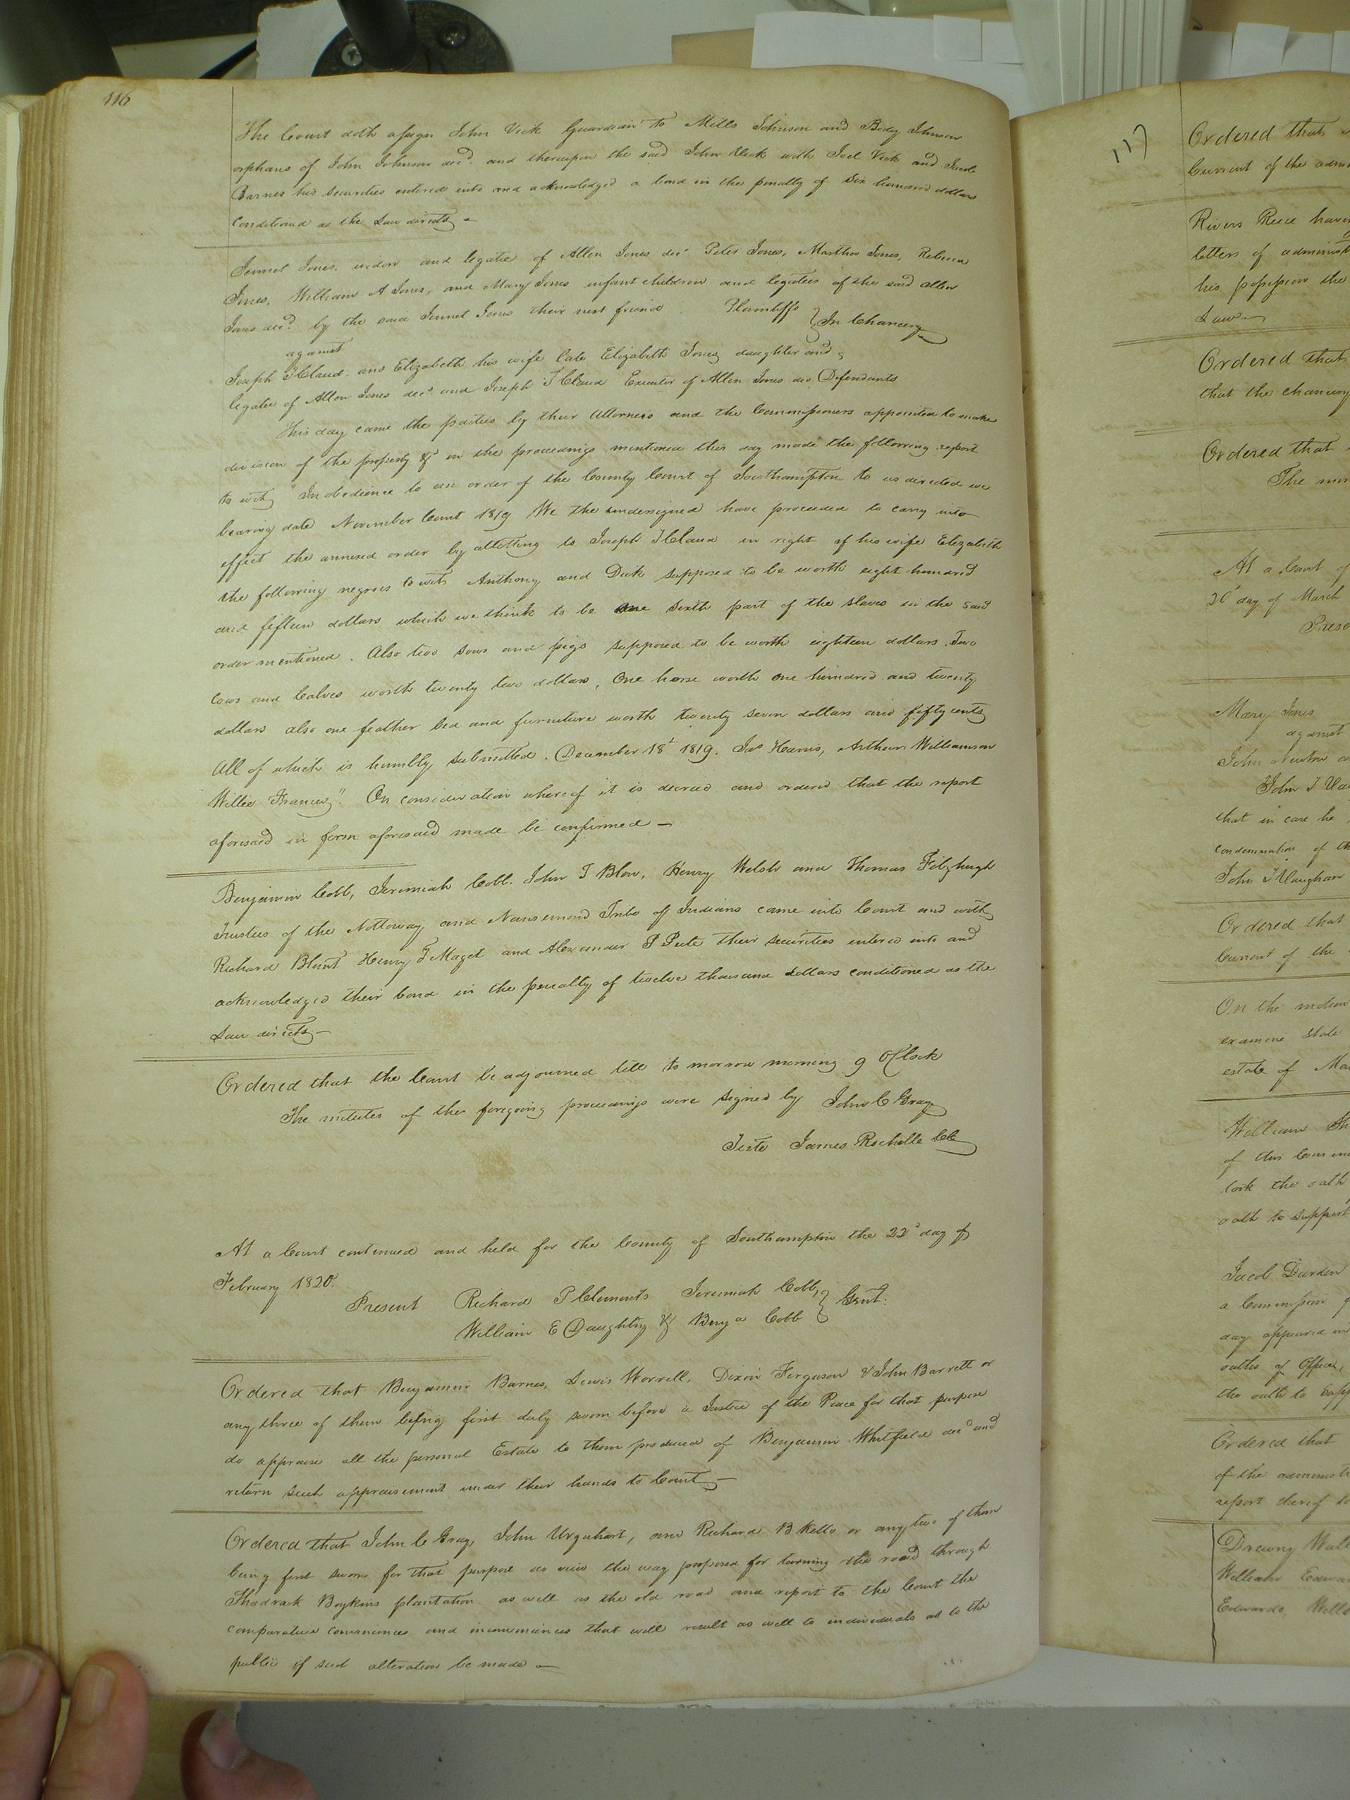 116
The Court doth assign John Vick Guardian to Mills Johnson and Body Johnson
orphans of John Johnson decd. and thereupon the said John Vick with Joel Vick and Jacob
Barnes his securities entered into and acknowledged a bond in the penalty of Six hundred dollars
conditioned as the Law directs
Jennet Jones, widow and legatee of Allen Jones decd Peter Jones, Martha Jones, Rebecca
Jones, William A Jones, and Mary Jones infant children and legatees of the said Allen
Jones decd. by the said Jennet Jones their next friend Plaintiffs } In Chancery
against
Joseph T Claud and Elizabeth his wife late Elizabeth Jones daughter and
legatee of Allen Jones decd and Joseph T Claud Executor of Allen Jones decd Defendants
This day came the parties by their Attornies and the Commissioners appointed to make
division of the property &c in the proceedings mentioned this day made the following report
to wit, In obedience to an order of the County Court of Southampton to us directed
bearing date November Court 1819 We the undersigned have proceeded to carry into
effect the annexed order by allotting to Joseph T Claud in right of his wife Elizabeth
the following negroes to wit, Anthony and Dick supposed to be worth eight hundred
and fifteen dollars which we think to be one sixth part of the slaves in the said
order mentioned. Also two sows and pigs supposed to be worth eighteen dollars, Two
Cows and Calves worth twenty two dollars, One horse worth one hundred and twenty
dollars also one feather bed and furniture worth twenty seven dollars and fifty cents
All of which is humbly submitted. December 18t 1819. Jas Harris, Arthur Williamson
Willie Francis" On consideration whereof it is decreed and ordered that the report
aforesaid in form aforesaid made be confirmed
Benjamin Cobb, Jeremiah Cobb, John T Blow, Henry Welsh and Thomas Fitzhugh
Trustees of the Nottoway and Nansemond Tribe of Indians came into Court and with
Richard Blunt Henry T Maget and Alexander P Peete their securities entered into and
acknowledged their bond in the penalty of twelve thousand dollars conditioned as the
Law directs
Ordered that the Court be adjourned till to morrow morning 9 OClock
The minutes of the foregoing proceedings were signed by John C Gray
Teste James Rochelle Clk
At a Court continued and held for the County of Southampton the 22d day of
February 1820.
Present Richard P Clements Jeremiah Cobb } Gent.
William E Daughtry & Benja Cobb
Ordered that Benjamin Barnes, Lewis Worrell, Dixon Ferguson & John Barrett or
any three of them being first duly sworn before a Justice of the Peace for that purpose
do appraise all the personal Estate to them produced of Benjamin Whitfield decd and
return such appraisement under their hands to Court
Ordered that John C Gray, John Urquhart, and Richard B Kello or any two of them
being first sworn for that purpose do view the way proposed for turning the road through
Shadrack Boykins plantation as well as the old road and report to the Court the
comparative conveniences and inconveniences that will result as well to individuals as to the
public if such alteration be made
117
Ordered that
Current of the
Rivers Reese
letters of
his possession the
Law
Ordered that
that the chancery
Ordered that
The
At a Court of
20 day of March
Mary Jones
against
John Newton
John T
that in case he
condemnation of
John T Vaughan
Ordered that
Current of the
On the motion
examine state
estate of
William
of this
took the oath
oath to support
Jacob Darden
a Commission
day appeared
oaths of Office,
the oath to
Ordered that
of the
report thereof
Drewry
William
Edwards,